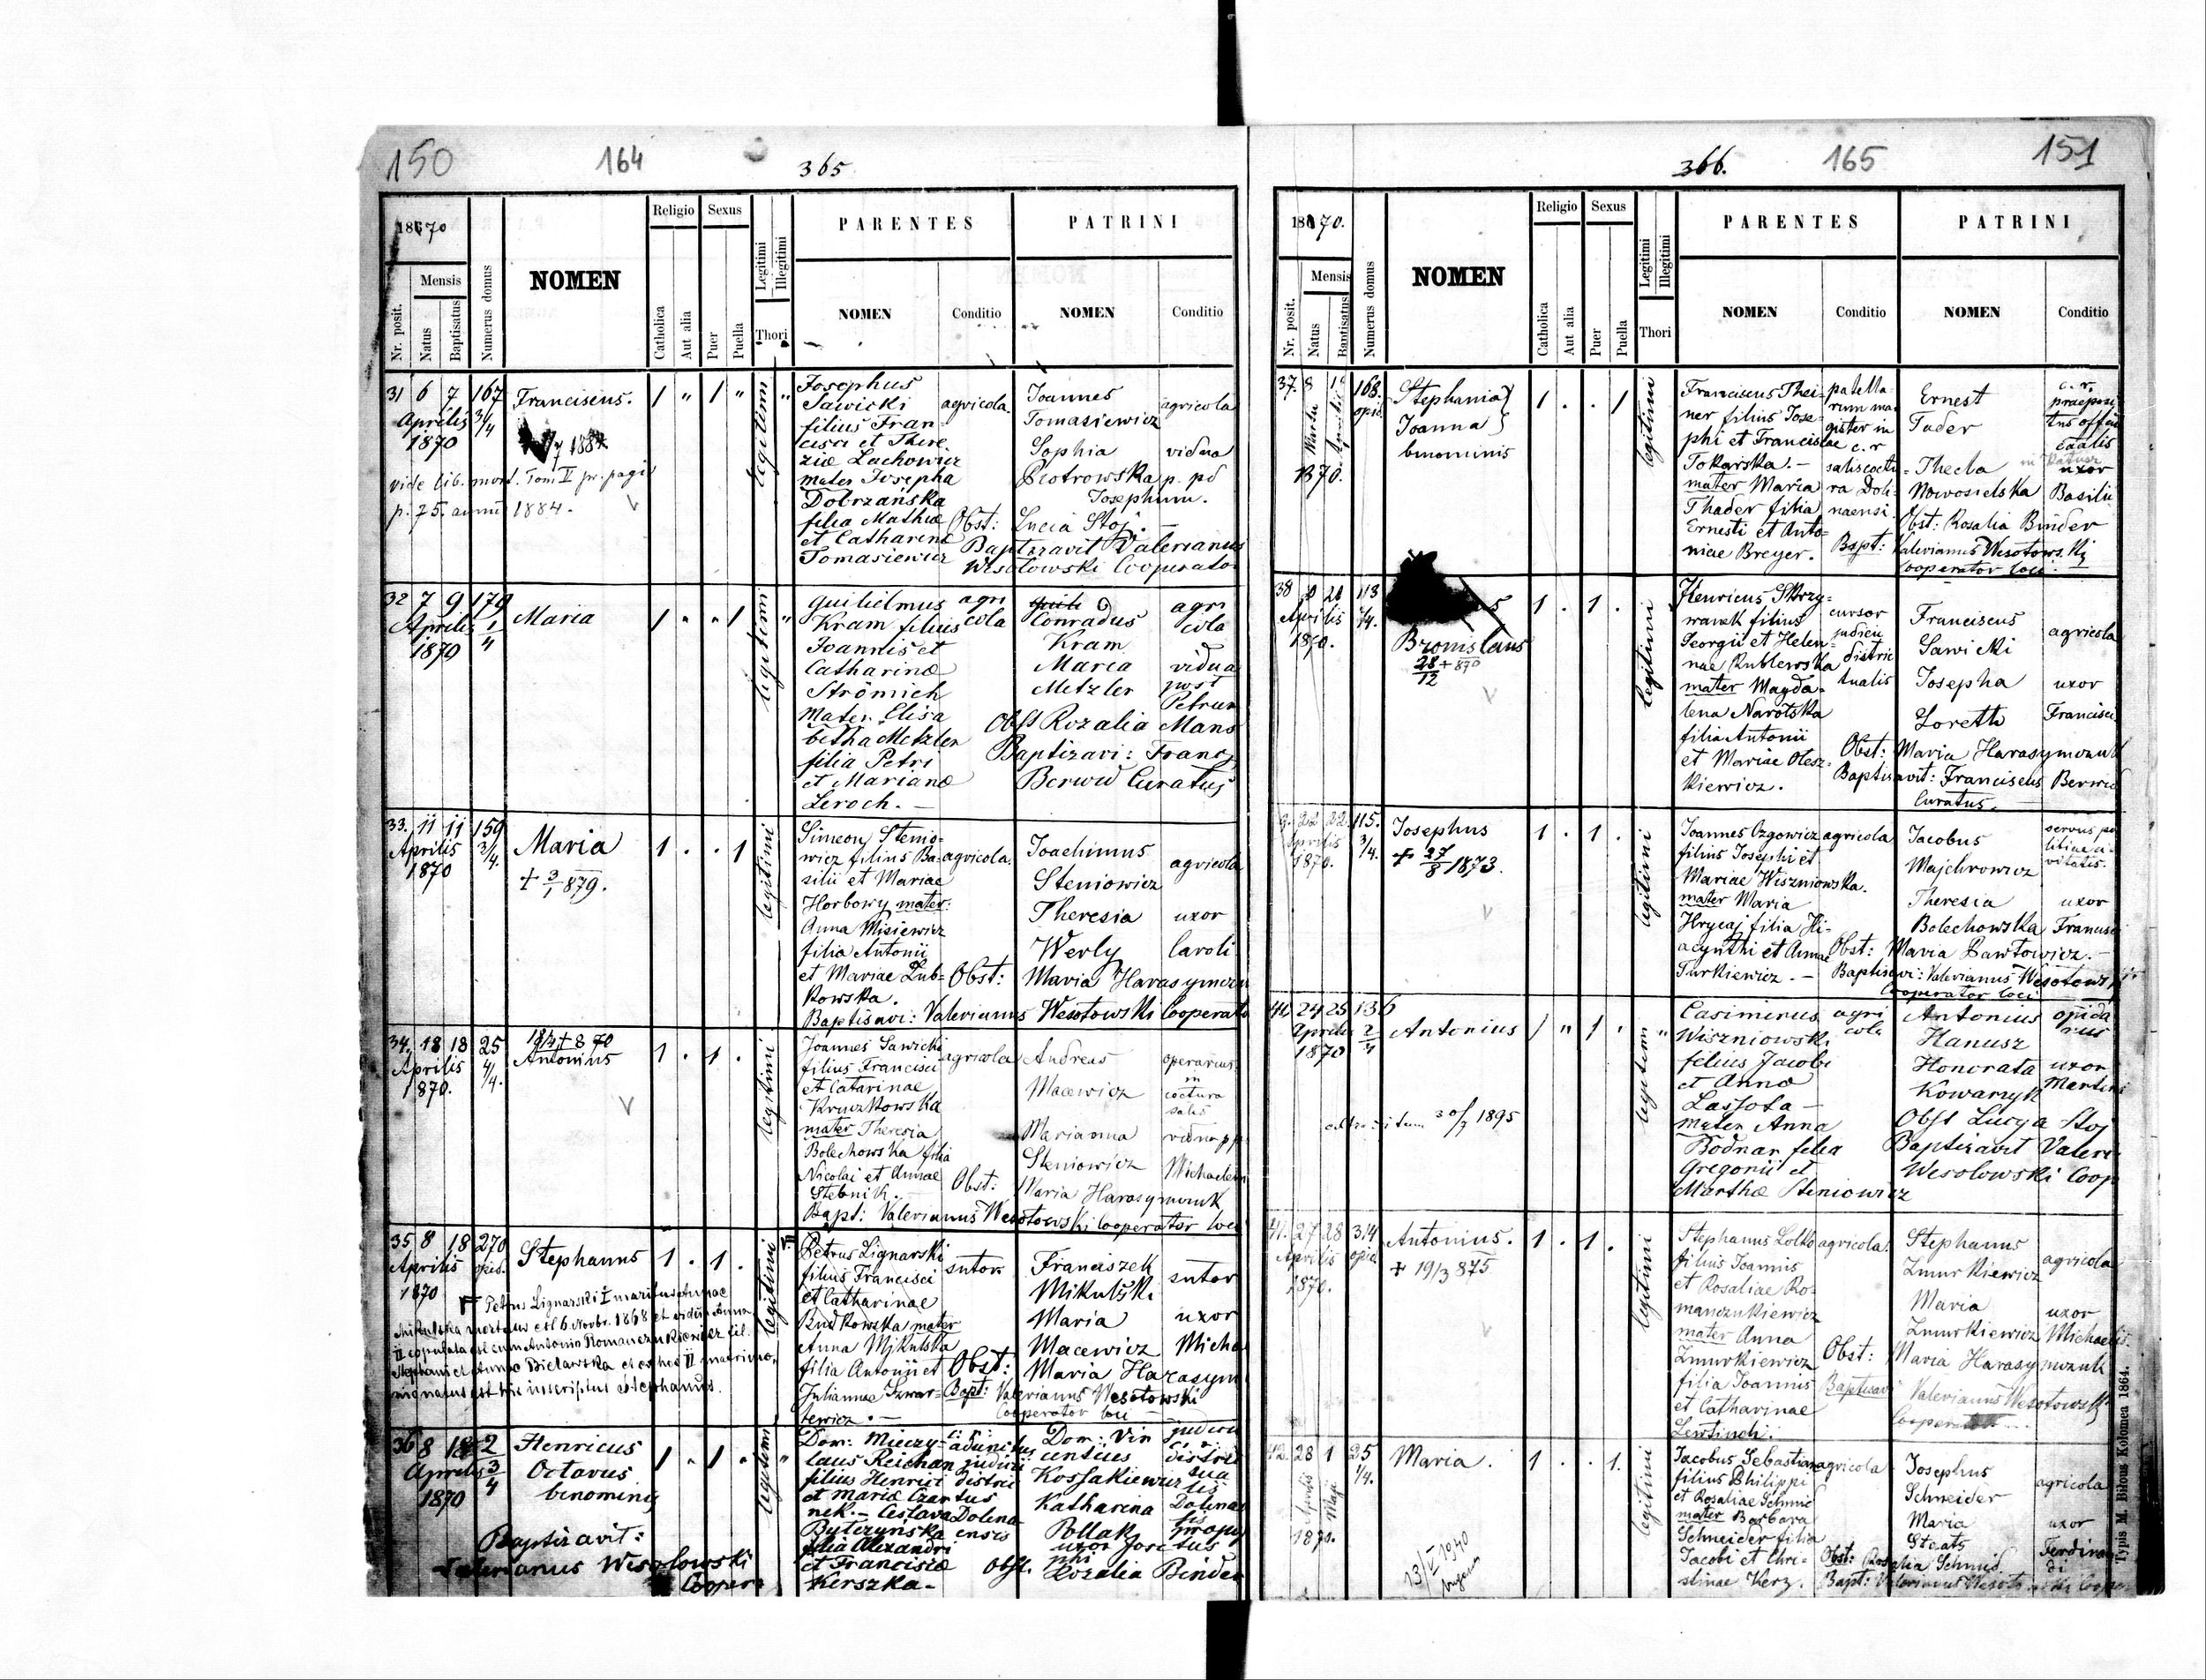 150 164 365
1870
Mensis
Nr. posit.
Natus
Baptisatus
Numerus domus
NOMEN
Religio
Catholica
Aut alia
Sexus
Puer
Puella
Legitimi
Illegitimi
Thori
PARENTES
NOMEN
Conditio
PATRINI
NOMEN
Conditio
31 6 7 167
Aprilis 3/4
1870
Franciscus.
vide lib. mort. Tom II pr. pagi
p. 75. anni 1884.
1 " 1 "
legitimi "
Josephus
Sawicki
filius Fran-
cisci et There
ziæ Lachowicz
mater Josepha
Dobrzańska
filia Mathiæ
et Catharinæ
Tomasiewicz
agricola.
Joannes
Tomasiewicz
agricola
Sophia
vidua
Piotrowska p. pd
Josephum.
Obst: Lucia Stoj. —
Baptizavit Valerianus
Wesołowski Cooperator
32 7 9 179
Aprilis 1/4
1870
Maria
1 " " 1
legitimi "
Guilielmus
Kram filius
Joannis et
Catharinæ
Strömich
Mater Elisa
betha Metzler
filia Petri
et Marianæ
Leroch. —
agri
cola
Conradus
Kram
agri
cola
Maria
Metzler
vidua
post
Petrum
Obst Rozalia Mans
Baptizavi: Franc
Berwid Curatus
33. 11 11 159
Aprilis 3/4.
1870
Maria
+ 3/1 879.
1 . . 1
legitimi
Simeon Stenio-
wicz filius Ba-
silii et Mariae
Horbowy mater:
Anna Misiewicz
filia Antonii
et Mariae Lub-
kowska.
agricola.
Joachimus
Steniowicz
agricola
Theresia
Werly
uxor
Caroli
Obst: Maria Harasymczu
Baptisavi: Valerianus Wesołowski Cooperato
34. 18 18 25
Aprilis 4/4.
1870.
18/4 + 870
Antonius
1 . 1 .
legitimi
Joannes Sawicki
filius Francisci
et Catarinae
Kruczkowska
mater Theresia
Bolechowska filia
Nicolai et Annae
Stebnik. —
agricola
Andreas
Macewicz
operarius
in
coctura
salis
Marianna
Steniowicz
vidua pp
Michaelem
Obst: Maria Harasymczuk
Bapt: Valerianus Wesołowski Cooperator loci
35 8 18 270
Aprilis opid.
1870
Stephanus
1 . 1 .
legitimi
Petrus Lignarski
filius Francisci
et Catharinae
Budkowska mater
Anna Mikulska
filia Antonii et
Juliannae Szwar-
tewicz. —
sutor
Franciszek
Mikulski
sutor
Maria
Macewicz
uxor
Micha
Obst: Maria Harasym
Bapt: Valerianus Wesołowski
Cooperator loci
Petrus Lignarski I maritus Annae
Mikulska mortuus est 6 Novbr. 1868 et vidua Anna
II copulata est cum Antonio Romanczukiewicz fil.
Stephani et Annae Bielawska et ex hoc II matrimo,
nio natus est hic inscriptus Stephanus.
36 8 18 2
Aprilis 3/4
1870
Henricus
Octavus
binominis
Baptizavit:
Valerianus Wesołowski
Cooper.
1 " 1 "
legitimi "
Dom: Mieczy-
laus Reichan
filius Henrici
et mariæ Czar
nek. — Ceslava
Bytczyńska
filia Alexandri
et Franciscæ
Kerszka —
adunctus
judicii
distri
tus
Dolina
ensis
Dom: Vin
centius
Kossakiewicz
judicii
distric
tua
lis
Dolinæ
Katharina
Pollak
uxor Jose
phi
Obst. Rozalia Binder
366. 165 151
1870.
Mensis
Nr. posit.
Natus
Baptisatus
Numerus domus
NOMEN
Religio
Catholica
Aut alia
Sexus
Puer
Puella
Legitimi
Illegitimi
Thori
PARENTES
NOMEN
Conditio
PATRINI
NOMEN
Conditio
37. 8 168.
Martii Aprilis opid.
1870.
Stephania
Joanna
binominis
1 . . 1
legitimi
Franciscus Thei-
ner filius Jose-
phi et Franciscae
Tokarska. —
mater Maria
Thader filia
Ernesti et Anto-
niae Breyer.
patella-
rum ma-
gister in
c. r
saliscoctu-
ra Doli-
naensi.
Ernest
Tader
c. r.
praeposi
tus officii
Thecla
Nowosielska
uxor
Basilii
Obst: Rosalia Binder
Bapt: Valerianus Wesołowski
Cooperator loci.
38 21 113
Aprilis 1/4.
1870.
Bronislaus
28/12 + 870
1 . 1 .
legitimi
Henricus Skrzy-
wanek filius
Georgii et Hele-
nae Kublewska
mater Magda-
lena Narolska
filia Antonii
et Mariae Olesz-
kiewicz.
cursor
judicii
distric
tualis
Franciscus
Sawicki
agricola
Josepha
Loreth
uxor
Francisci
Obst: Maria Harasymczuk
Baptisavit: Franciscus Berwid
Curatus. —
22 22 115.
Aprilis 3/4.
1870.
Josephus
+ 27/8 1873.
1 . 1 .
legitimi
Joannes Ozgowicz
filius Josephi et
Mariae Wiszniowska.
mater Maria
Hrycaj filia Hi-
acynthi et Annae
Turkiewicz. —
agricola
Jacobus
Majchrowicz
servus po
litiae ci-
vitatis.
Theresia
Bolechowska
uxor
Francisci
Obst: Maria Pawłowicz. —
Baptisavi: Valerianus Wesołowski
Cooperator loci
40. 24 25 136
Aprilis 2/4
1870
Antonius
30/7 1895
1 " 1 "
legitimi "
Casimirus
Wiszniowski
filius Jacobi
et Annæ
Lassota —
mater Anna
Bodnar filia
Gregorii et
Marthæ Steniowicz
agri
cola
Antonius
Hanusz
opida
nus
Honorata
Kowarzyk
uxor
Martini
Obst Lucya Stoj
Baptizavit Valeri
Wesolowski Coop
41. 27 28 314
Aprilis opid.
1870.
Antonius.
+ 19/3 875
1 . 1 .
legitimi
Stephanus Lotko
filius Joannis
et Rosaliae Ro-
manczukiewicz
mater Anna
Zmurkiewicz
filia Joannis
et Catharinae
Lewlinch.
agricola.
Stephanus
Zmurkiewicz
agricola
Maria
Zmurkiewicz
uxor
Michaelis.
Obst: Maria Harasymczuk
Baptisavi Valerianus Wesołowski
Cooperator
42. 28 1 25
Aprilis Maji 1/4.
1870.
Maria.
13/V 1940
1 . . 1.
legitimi
Jacobus Sebastian
filius Philippi
et Rosaliae Schmid
mater Barbara
Schneider filia
Jacobi et Chri-
stinae Kerz.
agricola
Josephus
Schneider
agricola
Maria
Steats
uxor
Ferdinan
di
Obst: Rosalia Schmid
Bapt: Valerianus Wesołowski Cooper
Typis M. Biłous Kolomea 1864.